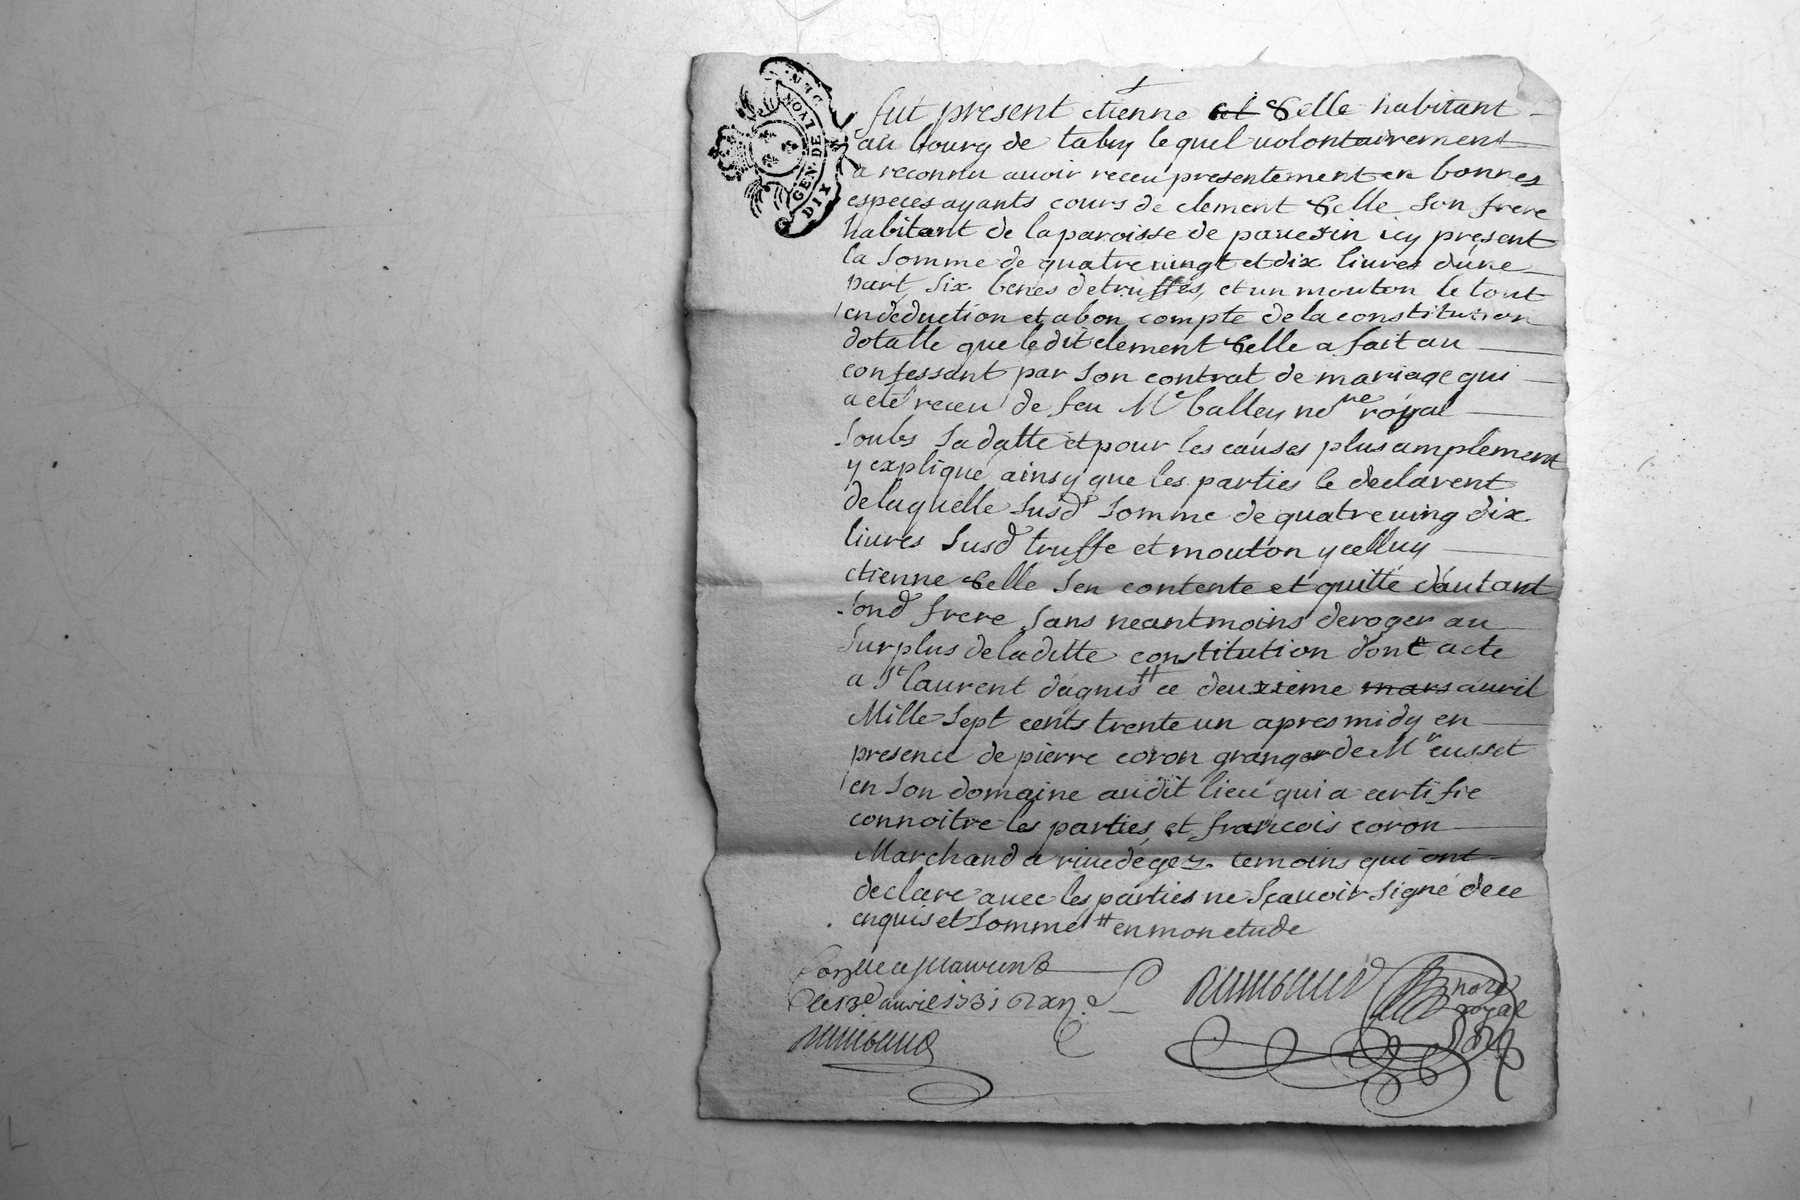 GEN. DE LYON
DIX DEN.
fut present etienne Selle habitant
au bourg de talus lequel volontairement
a reconnu auoir receu presentement en bonnes
especes ayants cours de clement Selle son frere
habitant de la paroisse de pauesin icy present
la Somme de quatre uingt et dix liures d'une
part, Six benes de truffes, et un mouton le tout
en deduction et abon compte de la constitution
dotalle que ledit clement Selle a fait au
confessant par Son contrat de mariage qui
a eté receu de feu Me balley nore royal
Soubs Sa datte et pour les causes plus amplement
y expliqué ainsy que les parties le declarent
de laquelle Susd Somme de quatre uing dix
liures Susd truffe et mouton ycelluy
etienne Selle Sen contente et quitte d'autant
Sond frere Sans neantmoins deroger au
Surplus de laditte constitution dont acte
a St laurent dagnis ce deuxieme mars auril
Mille Sept cents trente un apres midy en
presence de pierre coron granger de Mr cusset
en Son domaine audit lieu qui a certifie
connoitre les parties, et francois coron
Marchand a riuedegez. temoins qui ont
declare avec les parties ne Sçauoir Signé de ce
enquis et Sommé en mon etude
nore
royal
le 13e auril 1731